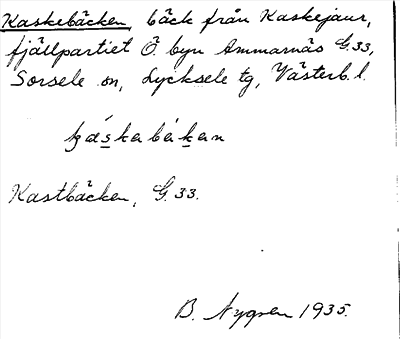 Kaskebäcken, bäck från Kaskejaur,
fjällpartiet Ö byn Ammarnäs G.33,
Sorsele sn, Lycksele tg, Västerb. l.
káskebákan
Kastbäcken, G.33.
B. Nygren 1935.